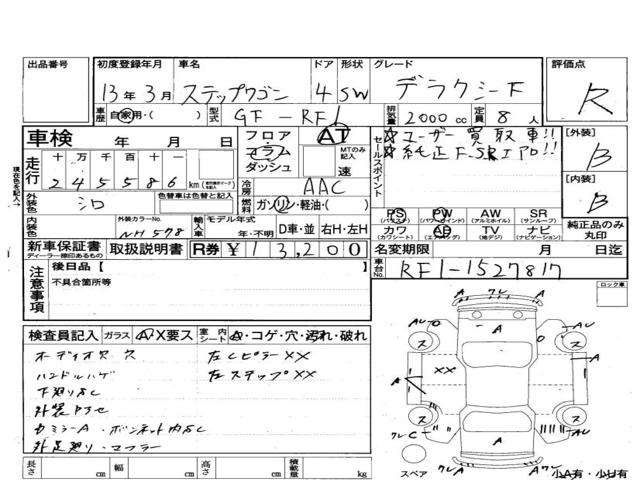 出品番号 初度登録年月 車名 ドア 形状 グレード 評価点
13年 3月 ステップワゴン 4 SW デラクシーF R
車歴 自家用・( ) 型式 GF-RF1 排気量 2000cc 定員 8人
車検 年 月 日 フロア コラム ダッシュ AT MTのみ記入 速 セールスポイント ☆ユーザー買取車!! [外装] B
走行 十 万 千 百 十 一 ☆純正F.S
2 4 5 5 8 6 km
現在色を記入→ 外装色 シロ 色替車は色替と記入 冷房 AAC [内装] B
燃料 ガソリン・軽油・( )
PS (パワステ) PW (パワーウインド) AW (アルミホイル) SR (サンルーフ)
内装色 外装カラーNo. NH578 輸入車 モデル年式 年・不明 D車・並 右H・左H カワ (カワシート) AB (エアバッグ) TV (地デジ) ナビ (ナビゲーション) 純正品のみ丸印
新車保証書 ディーラー捺印あるもの 取扱説明書 R券 ¥13,200 名変期限 月 日迄
注意事項 後日品【 】 車台No. RF1-1527817
不具合箇所等 ロック車
検査員記入 ガラス A・X要ス 室内シート A・コゲ・穴・汚れ・破れ
オーディオ穴、穴 左CピラーXX
ハンドルハゲ 左ステップXX
下廻りSC
外装
ミラーA・ボンネット内SC
外足廻り・マフラー
長さ cm 幅 cm 高さ cm 積載量 kg
A クレ A
AU A AU
ス ス
A XX A
ス ス
クレC A
スペア クレA Aクレ 小A有・小U有